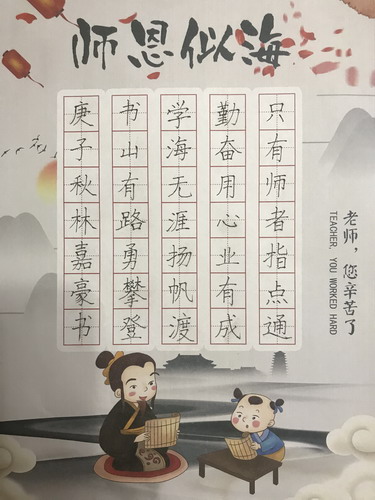 师恩似海
只有师者指点通
勤奋用心业有成
学海无涯扬帆渡
书山有路勇攀登
庚子秋林嘉豪书
老师，您辛苦了
TEACHER, YOU WORKED HARD